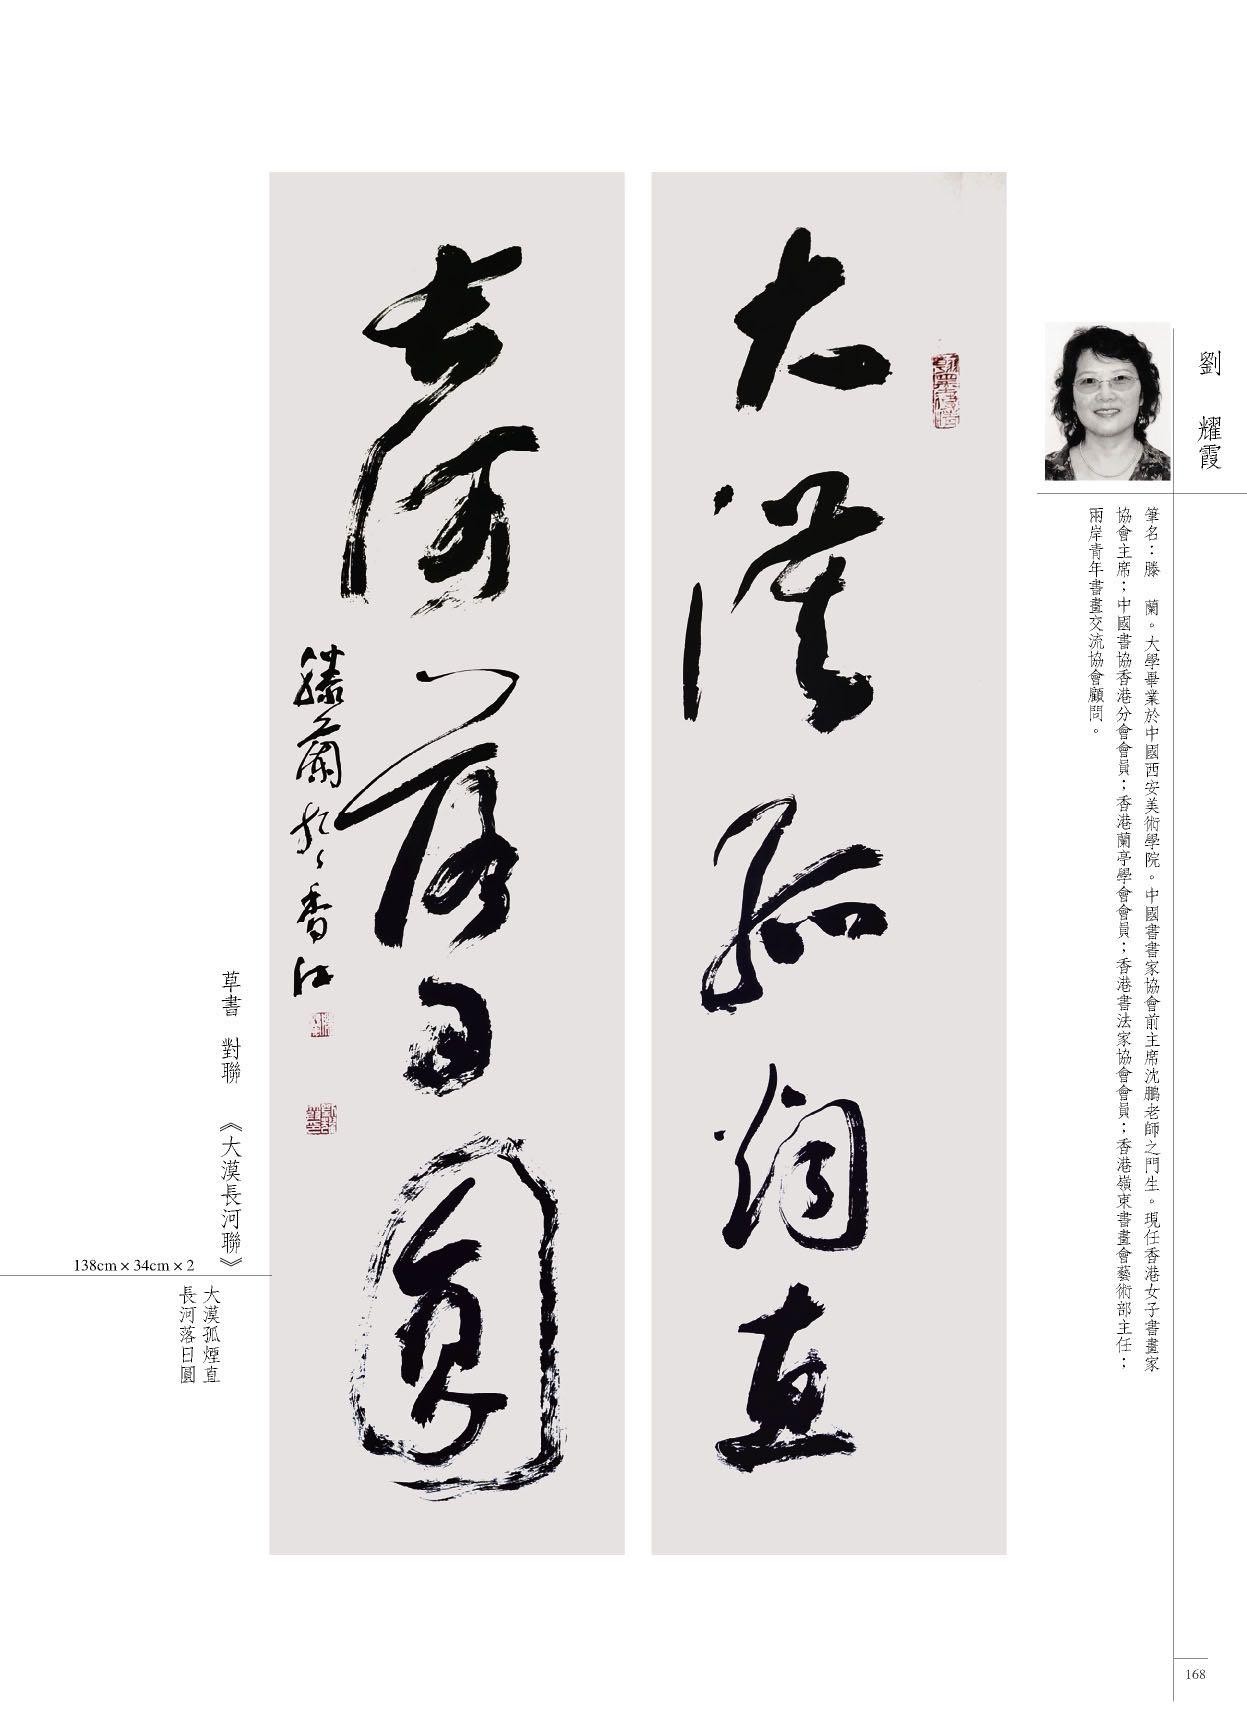 劉 耀霞
筆名：滕 蘭。大學畢業於中國西安美術學院。中國書書家協會前主席沈鵬老師之門生。現任香港女子書畫家
協會主席；中國書協香港分會會員；香港蘭亭學會會員；香港書法家協會會員；香港嶺東書畫會藝術部主任；
兩岸青年書畫交流協會顧問。
大漠孤烟直
長河落日圓
滕蘭於香江
草書 對聯 《大漠長河聯》
138cm × 34cm × 2
大漠孤煙直
長河落日圓
168